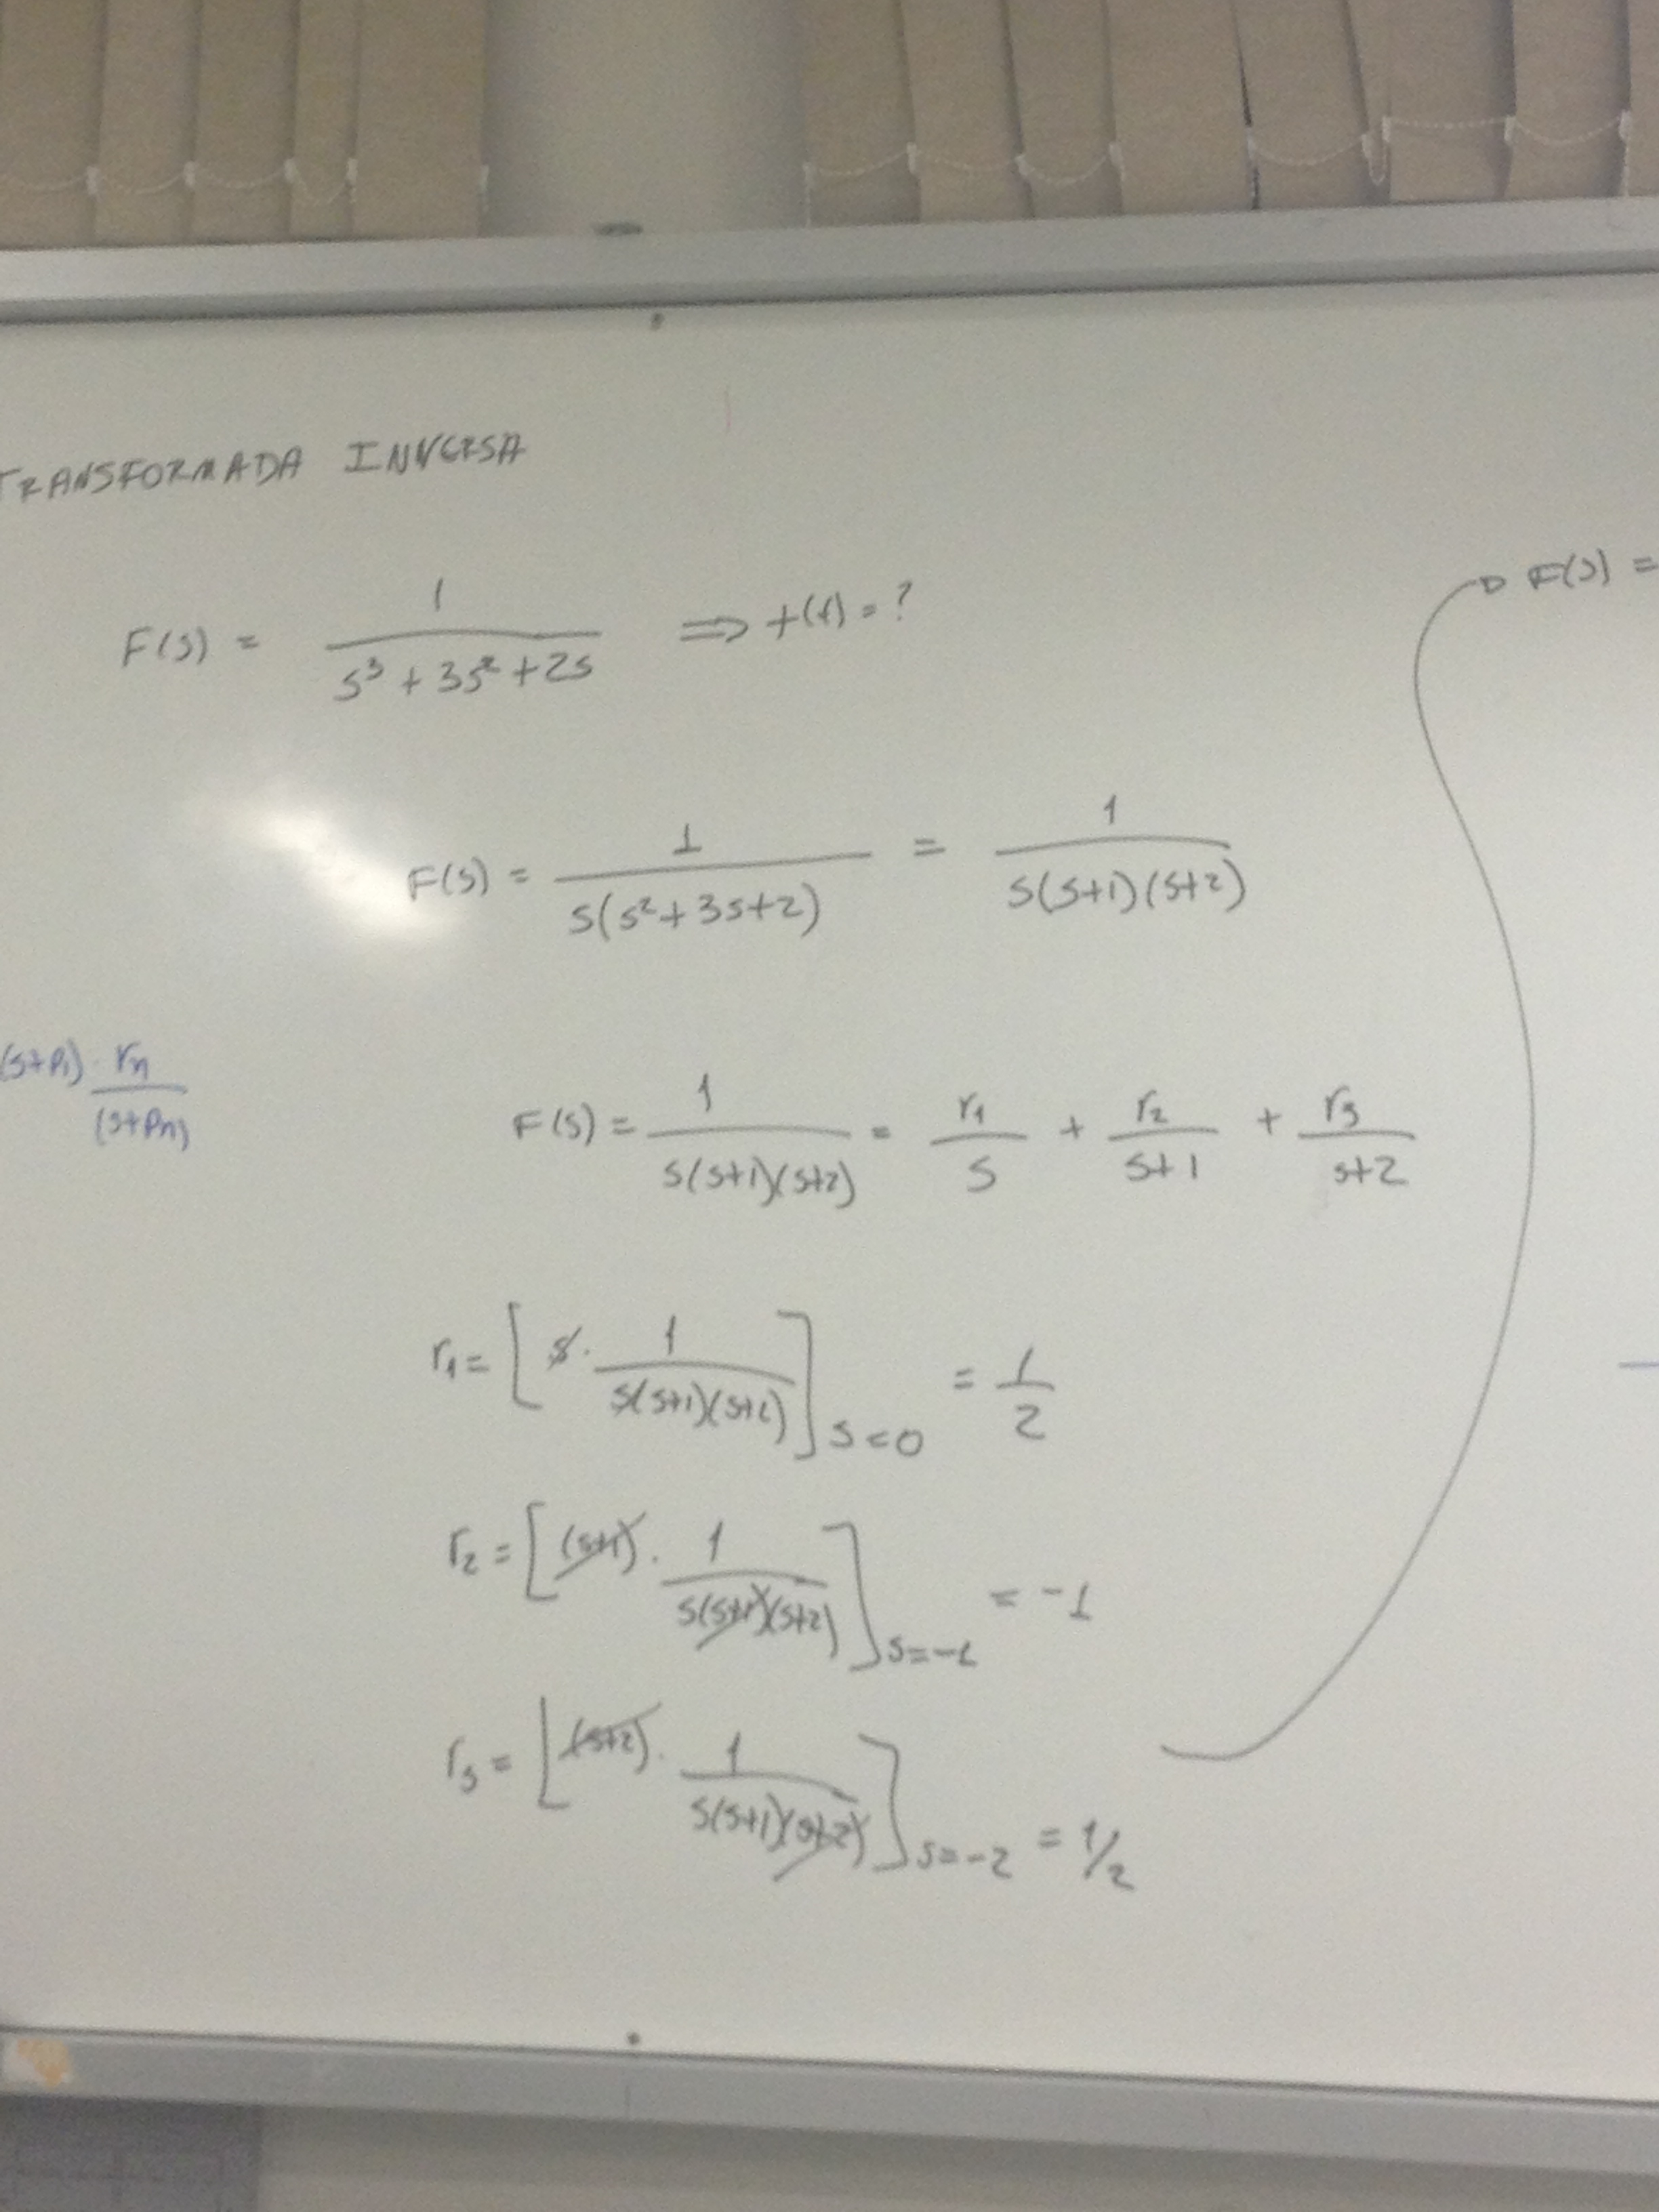 TRANSFORMADA INVERSA
F(s) = 1 / (s³ + 3s² + 2s) ⇒ f(t) = ?
F(s) =
F(s) = 1 / (s(s² + 3s + 2)) = 1 / (s(s+1)(s+2))
(s+p₁) · rₙ / (s+pₙ)
F(s) = 1 / (s(s+1)(s+2)) = r₁ / s + r₂ / (s+1) + r₃ / (s+2)
r₁ = [s · 1 / (s(s+1)(s+2))] s=0 = 1/2
r₂ = [(s+1) · 1 / (s(s+1)(s+2))] s=-1 = -1
r₃ = [(s+2) · 1 / (s(s+1)(s+2))] s=-2 = 1/2